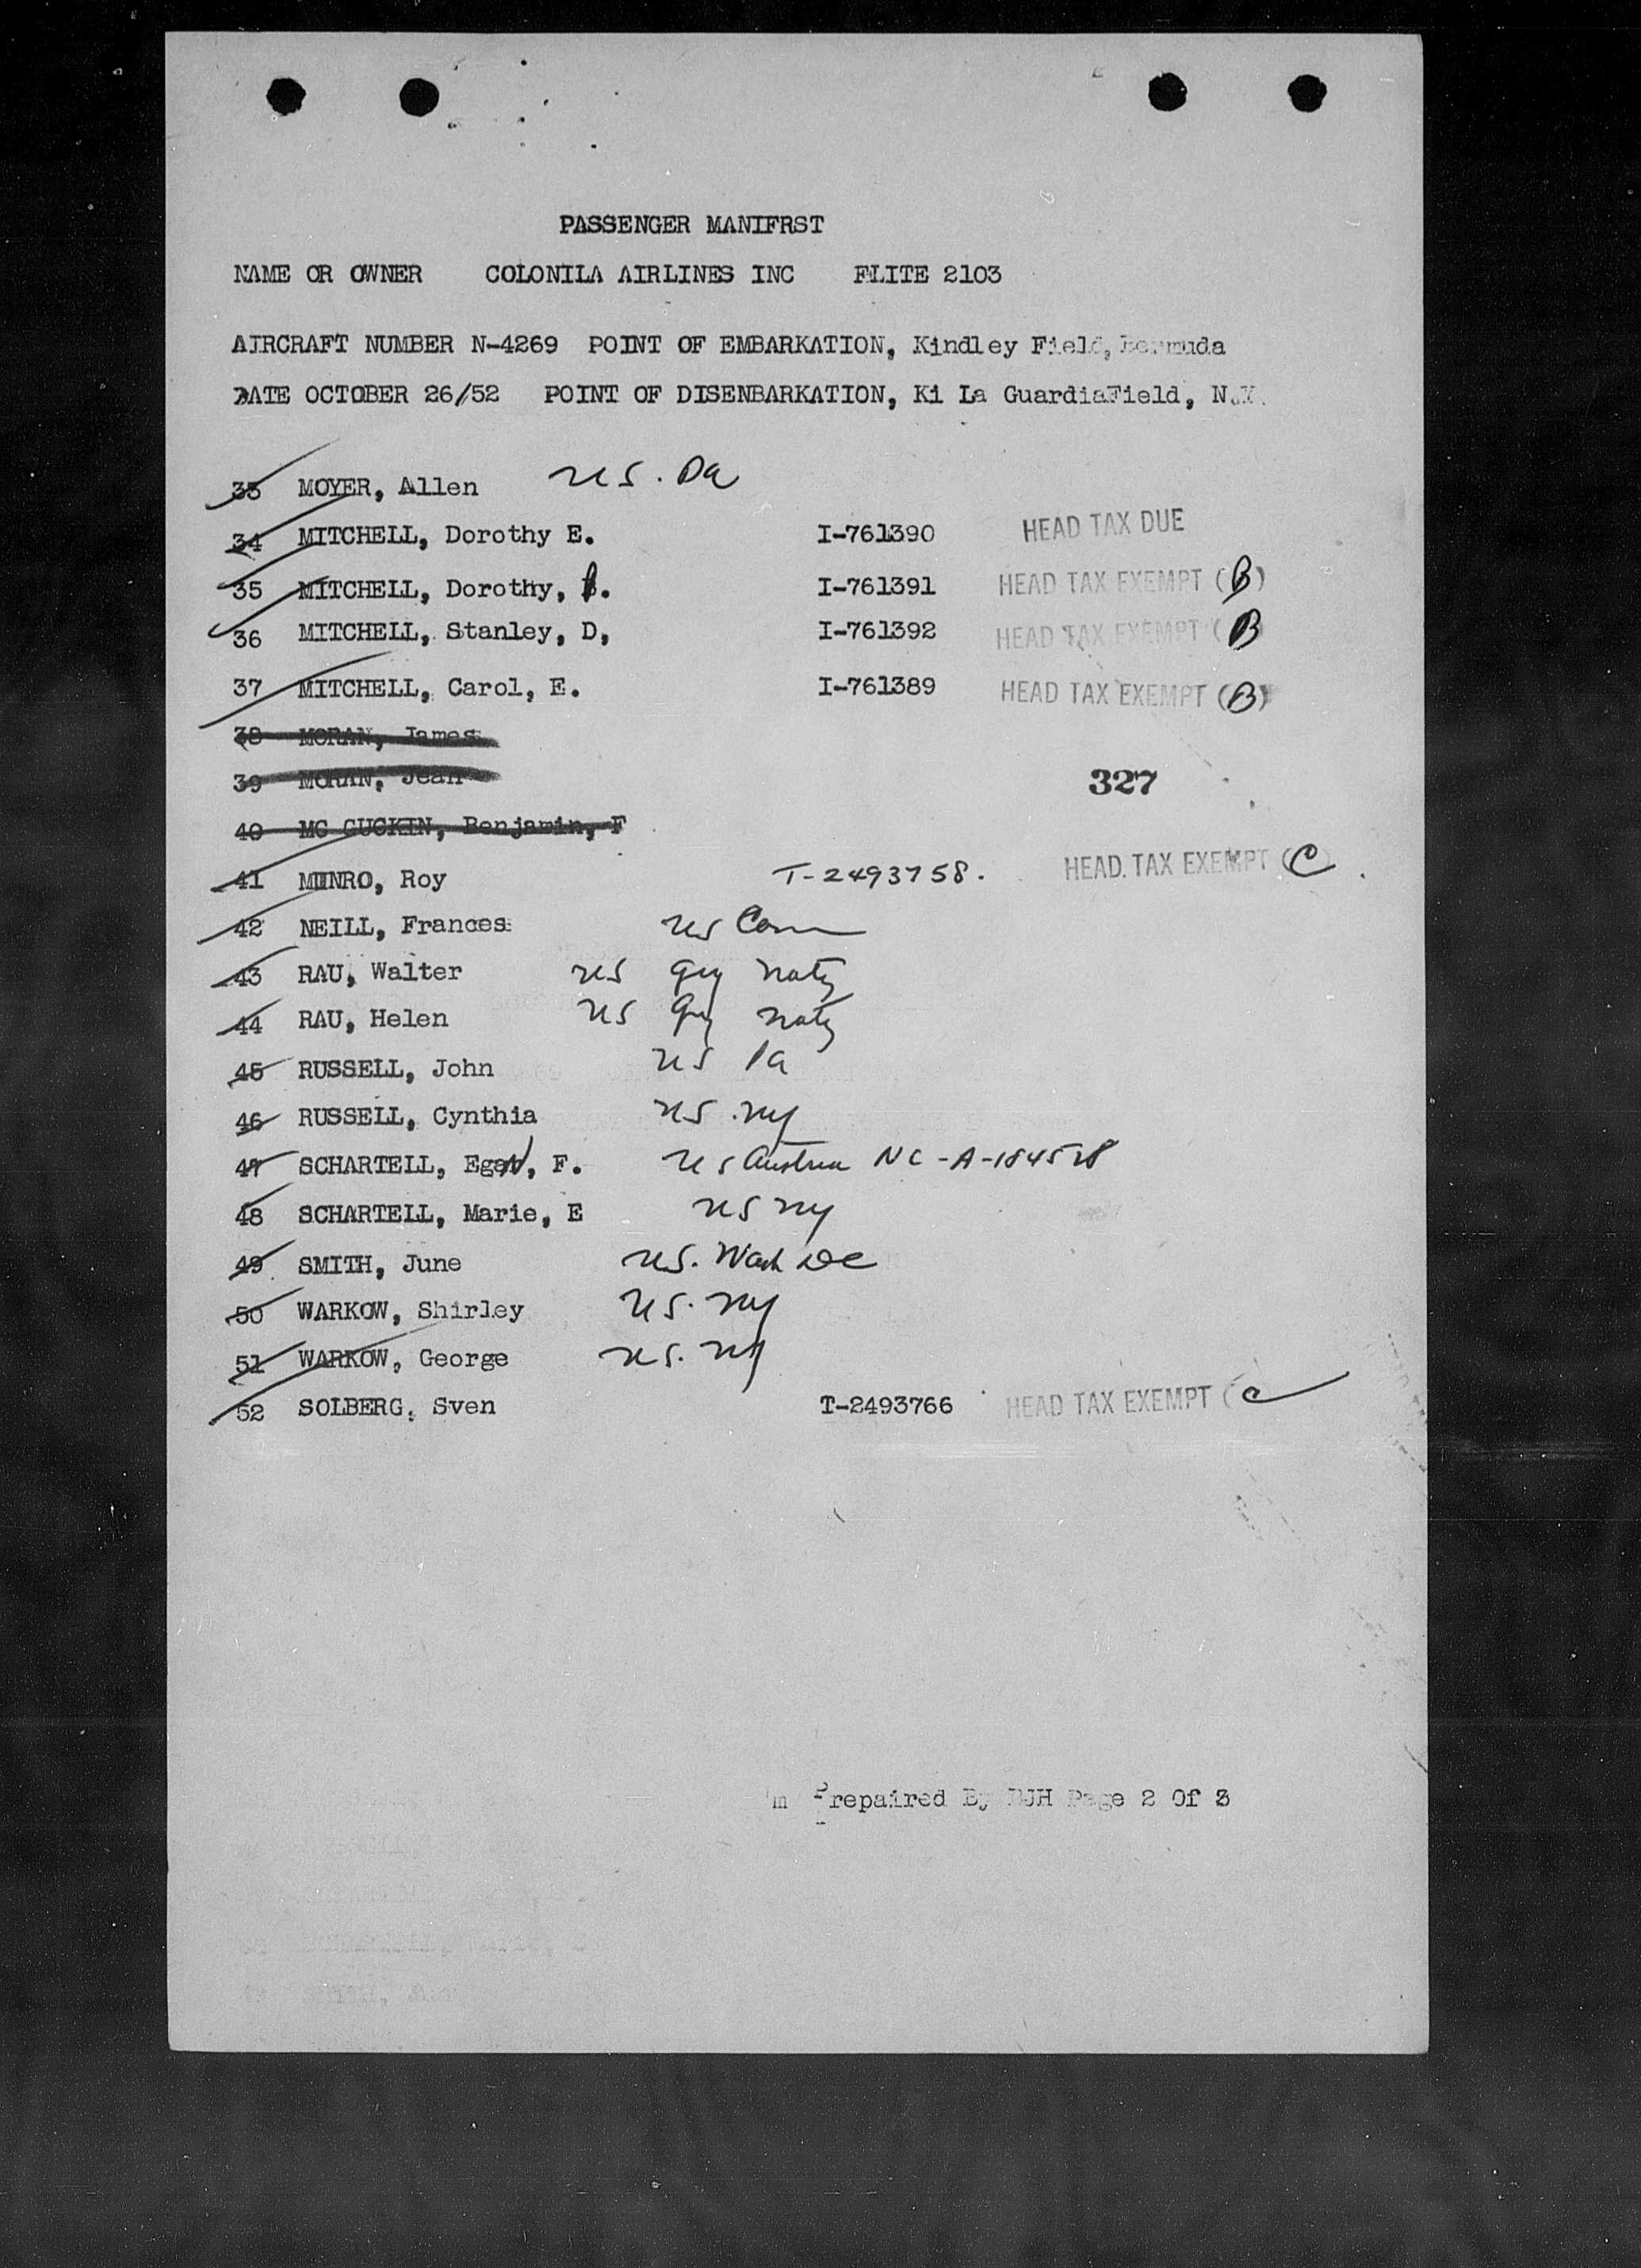 PASSENGER MANIFRST
NAME OR OWNER COLONILA AIRLINES INC FLITE 2103
AIRCRAFT NUMBER N-4269 POINT OF EMBARKATION, Kindley Field, Bermuda
DATE OCTOBER 26/52 POINT OF DISENBARKATION, Ki La GuardiaField, N.Y.
33 MOYER, Allen US. Pa
34 MITCHELL, Dorothy E. I-761390 HEAD TAX DUE
35 MITCHELL, Dorothy, B. I-761391 HEAD TAX EXEMPT (B)
36 MITCHELL, Stanley, D, I-761392 HEAD TAX EXEMPT (B)
37 MITCHELL, Carol, E. I-761389 HEAD TAX EXEMPT (B)
38 MORAN, James
39 MORAN, Jean
327
40 MC GUCKIN, Benjamin, F
41 MUNRO, Roy T-2493758. HEAD TAX EXEMPT (C)
42 NEILL, Frances US Conn
43 RAU, Walter US naty
44 RAU, Helen US naty
45 RUSSELL, John US Pa
46 RUSSELL, Cynthia US. NY
47 SCHARTELL, Egon, F. US Austria NC-A-184528
48 SCHARTELL, Marie, E US NY
49 SMITH, June US. Wash DC
50 WARKOW, Shirley US. NY
51 WARKOW, George US. NY
52 SOLBERG, Sven T-2493766 HEAD TAX EXEMPT (C
Prepaired By DJH Page 2 Of 3